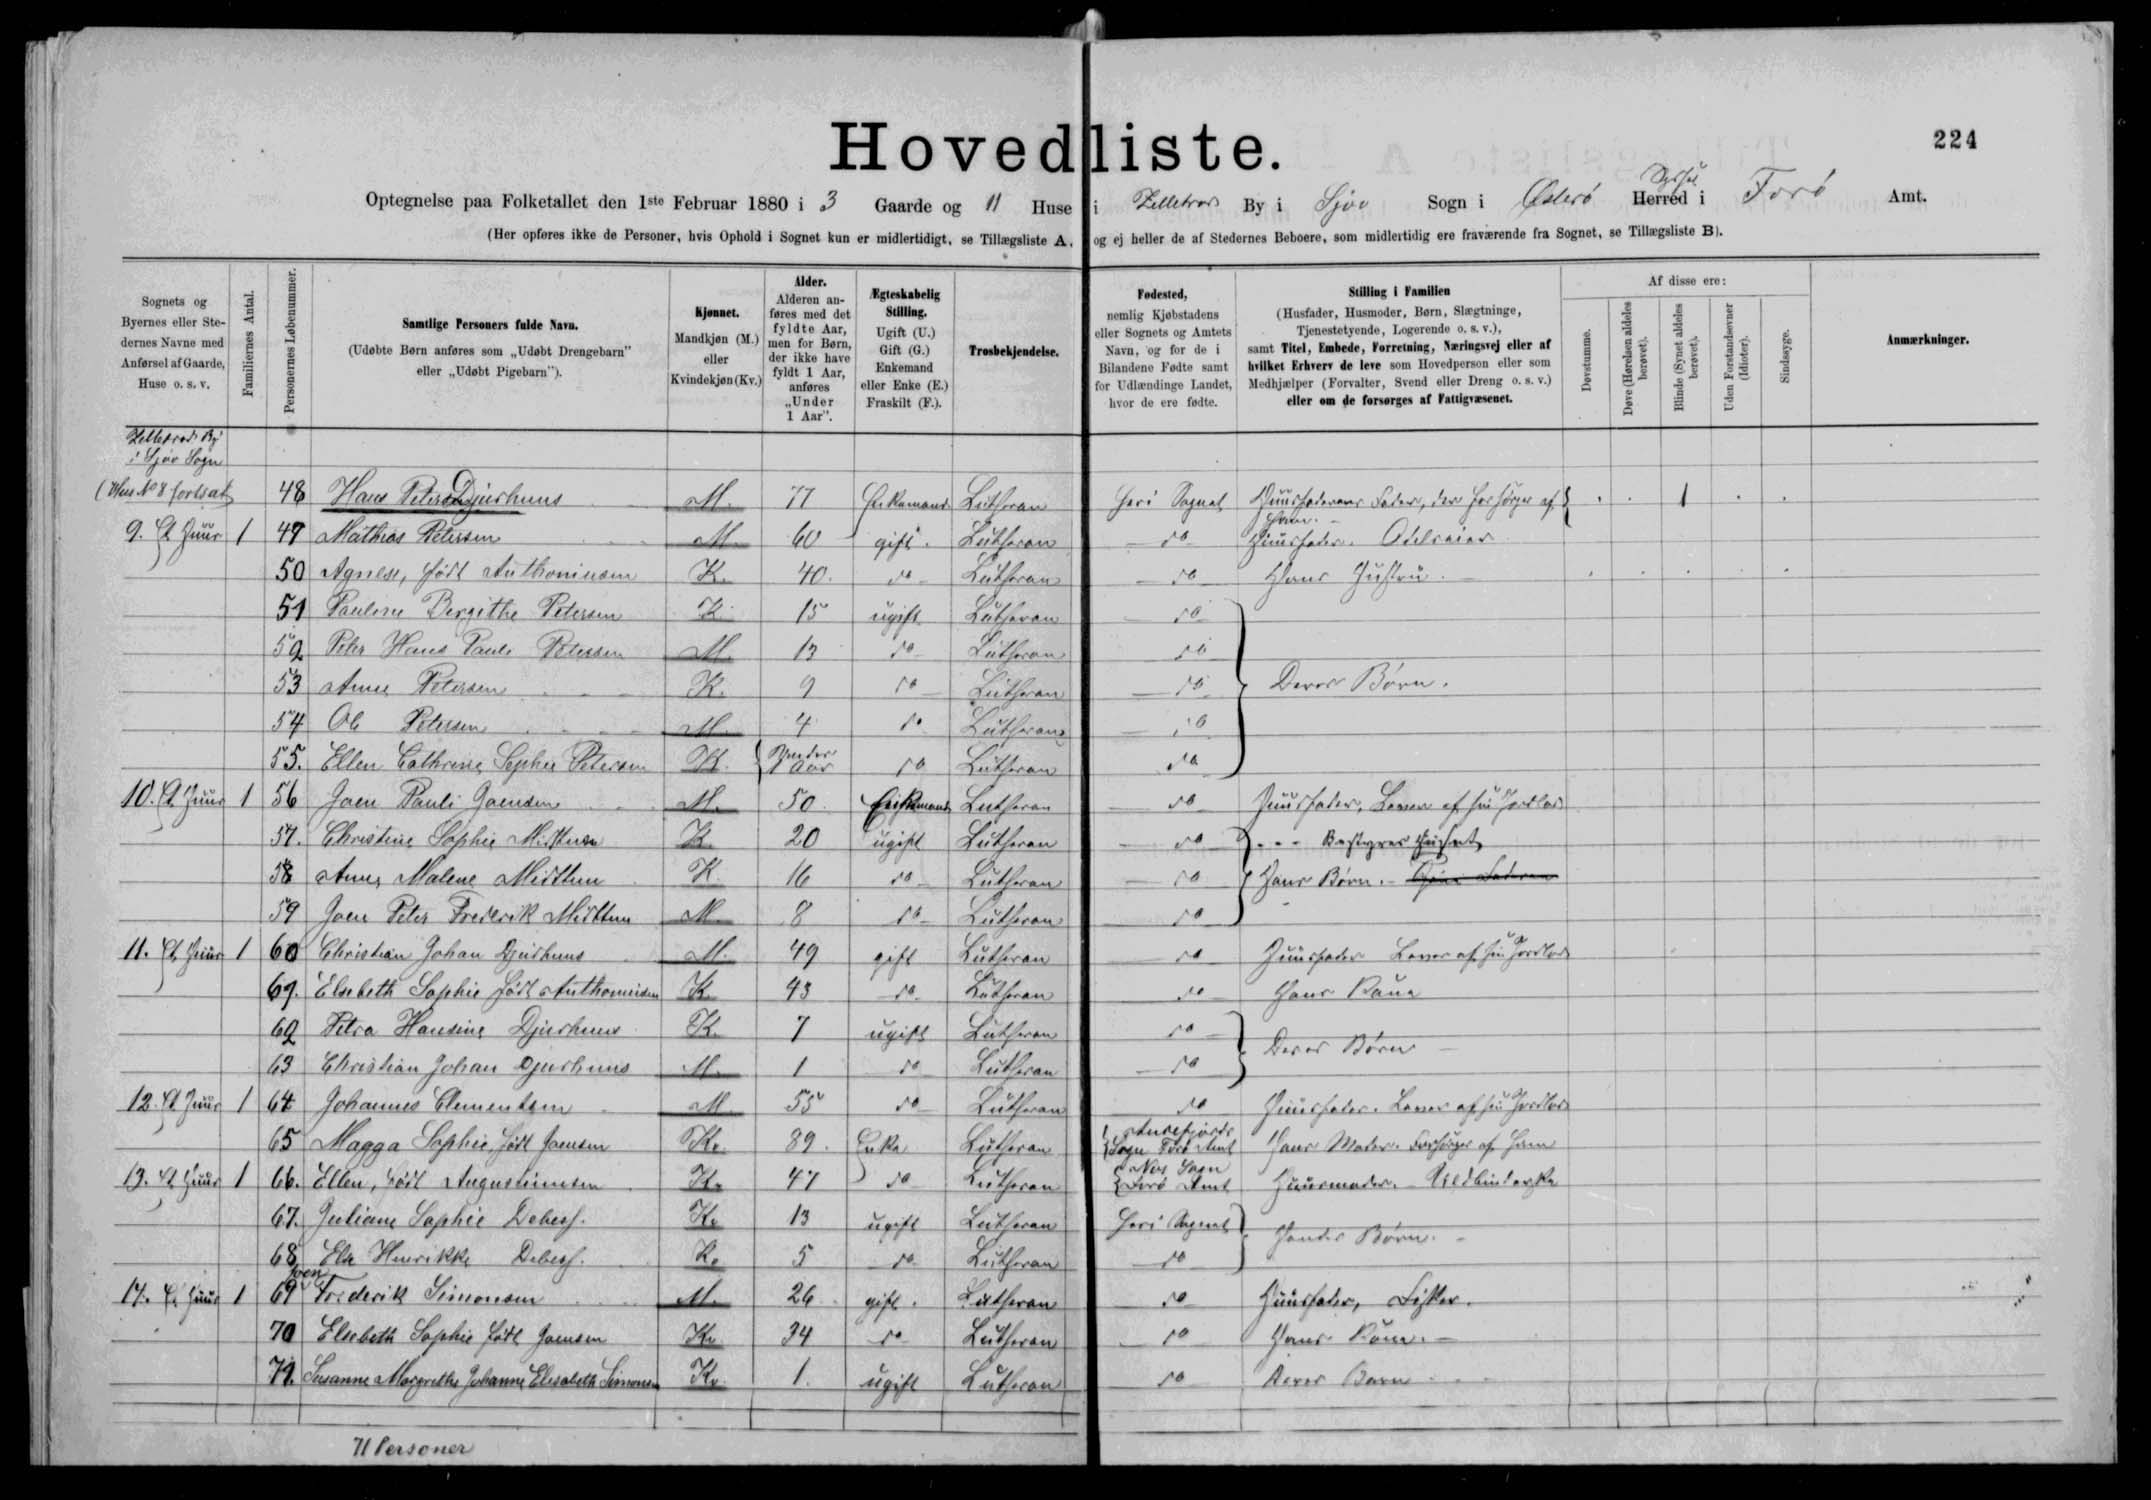 Hovedliste.
224
Optegnelse paa Folketallet den 1ste Februar 1880 i 3 Gaarde og 11 Huse i Zilletrød By i Sjov Sogn i Østerø Syssel Herred i Færø Amt.
(Her opføres ikke de Personer, hvis Ophold i Sognet kun er midlertidigt, se Tillægsliste A, og ej heller de af Stedernes Beboere, som midlertidig ere fraværende fra Sognet, se Tillægsliste B).
Sognets og Byernes eller Stedernes Navne med Anførsel af Gaarde, Huse o. s. v.
Familiernes Antal.
Personernes Løbenummer.
Samtlige Personers fulde Navn.
(Udøbte Børn anføres som „Udøbt Drengebarn" eller „Udøbt Pigebarn").
Kjønnet.
Mandkjøn (M.) eller Kvindekjøn (Kv.)
Alder.
Alderen anføres med det fyldte Aar, men for Børn, der ikke have fyldt 1 Aar, anføres „Under 1 Aar".
Ægteskabelig Stilling.
Ugift (U.) Gift (G.) Enkemand eller Enke (E.) Fraskilt (F.).
Trosbekjendelse.
Fødested,
nemlig Kjøbstadens eller Sognets og Amtets Navn, og for de i Bilandene Fødte samt for Udlændinge Landet, hvor de ere fødte.
Stilling i Familien
(Husfader, Husmoder, Børn, Slægtninge, Tjenestetyende, Logerende o. s. v.), samt Titel, Embede, Forretning, Næringsvej eller af hvilket Erhverv de leve som Hovedperson eller som Medhjælper (Forvalter, Svend eller Dreng o. s. v.) eller om de forsørges af Fattigvæsenet.
Af disse ere:
Døvstumme.
Døve (Hørelsen aldeles berøvet).
Blinde (Synet aldeles berøvet).
Uden Forstandsevner (Idioter).
Sindssyge.
Anmærkninger.
By i Sjov Sogn
(Hus No 8 fortsat) 48 Hans Petersen Djurhuus M. 77 Enkemand Lutheran Her i Sognet Huusfaderens Fader, der forsørges af ham. 1
9. Et Huus 1 49 Mathias Petersen M. 60 gift. Lutheran do Huusfader. Odelseier
50 Agnese, født Anthoniusen K. 40. do Lutheran do Hans Hustru.
51 Pauline Bergithe Petersen K. 15 ugift Lutheran do
52 Peter Hans Pauli Petersen M. 13 do Lutheran do
53 Anne Petersen K. 9 do Lutheran do Deres Børn.
54 Ole Petersen M. 4 do Lutheran do
55. Ellen Cathrine Sophie Petersen K. Under 1 Aar do Lutheran do
10. Et Huus 1 56 Joen Pauli Joensen M. 50 Enkemand Lutheran do Huusfader, Lever af sin Jordlod
57. Christine Sophie Midttun K. 20 ugift Lutheran do Bestyrer Huset
58 Anne Malene Midttun K. 16 do Lutheran do Hans Børn.
59 Joen Peter Frederik Midttun M. 8 do Lutheran do
11. Et Huus 1 60 Christian Johan Djurhuus M. 49 gift Lutheran do Huusfader Lever af sin Jordlod
61. Elsebeth Sophie født Anthoniusen K. 43 do Lutheran do Hans Kone
62 Petra Hansine Djurhuus K. 7 ugift Lutheran do
63 Christian Johan Djurhuus M. 1 do Lutheran do Deres Børn
12. Et Huus 1 64 Johannes Clementsen M. 55 do Lutheran do Huusfader. Lever af sin Jordlod
65 Magga Sophie, født Joensen Kv. 89. Enke Lutheran Andefjords Sogn Færø Amt Hans Moder. Forsørges af ham
13. Et Huus 1 66. Ellen, født Augustinusen Kv. 47 do Lutheran Nes Sogn Færø Amt Huusmoder. Uldbinderske
67. Juliane Sophie Debess. Kv. 13 ugift Lutheran Her i Sognet
68 Else Henrikke Debess. Kv. 5 do Lutheran do Hendes Børn.
14. Et Huus 1 69 Joen Frederik Simonsen M. 26 gift. Lutheran do Huusfader, Fisker.
70 Elsebeth Sophie født Joensen Kv. 34 do Lutheran do Hans Kone.
71. Susanne Margrethe Johanne Elisabeth Simonsen Kv. 1. ugift Lutheran do Deres Barn
71 Personer